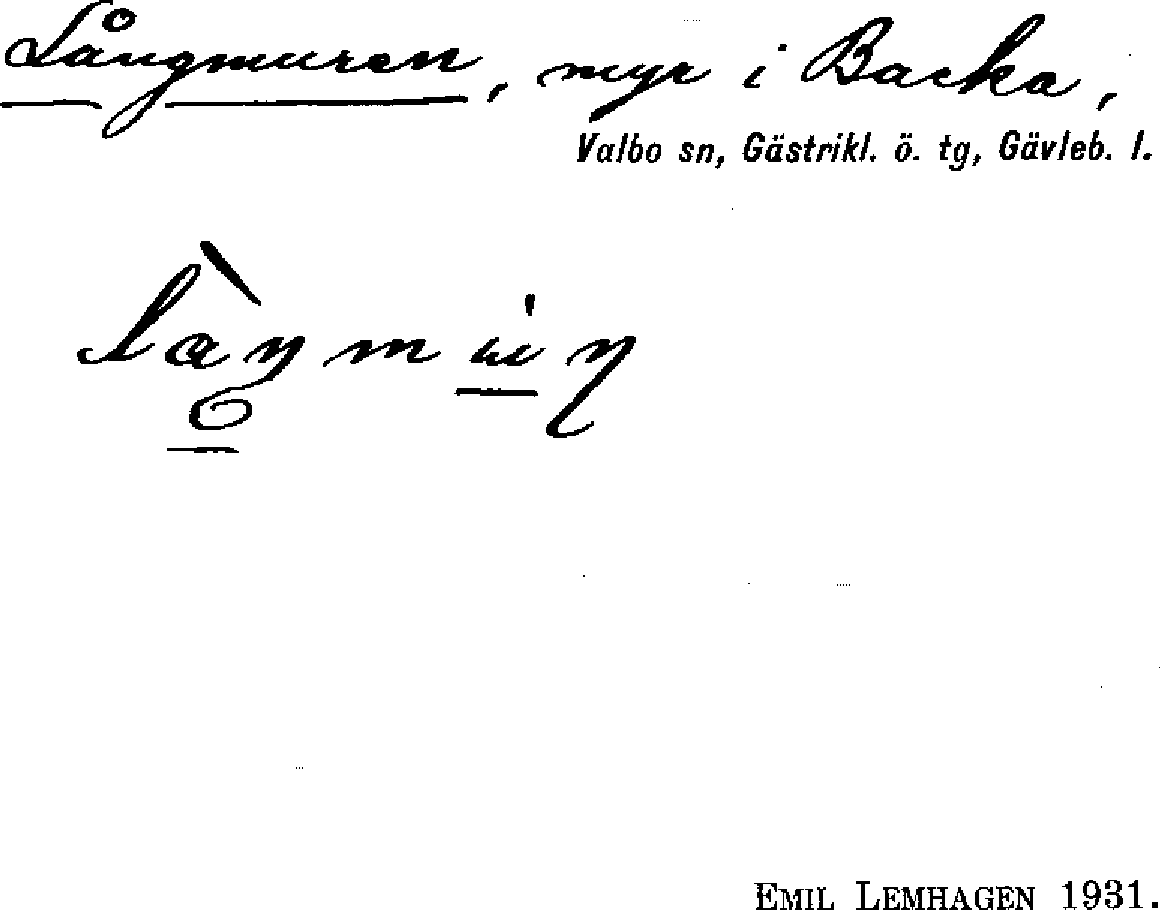 Långmuren, myr i Backa,
Valbo sn, Gästrikl. ö. tg, Gävleb. l.
EMIL LEMHAGEN 1931.